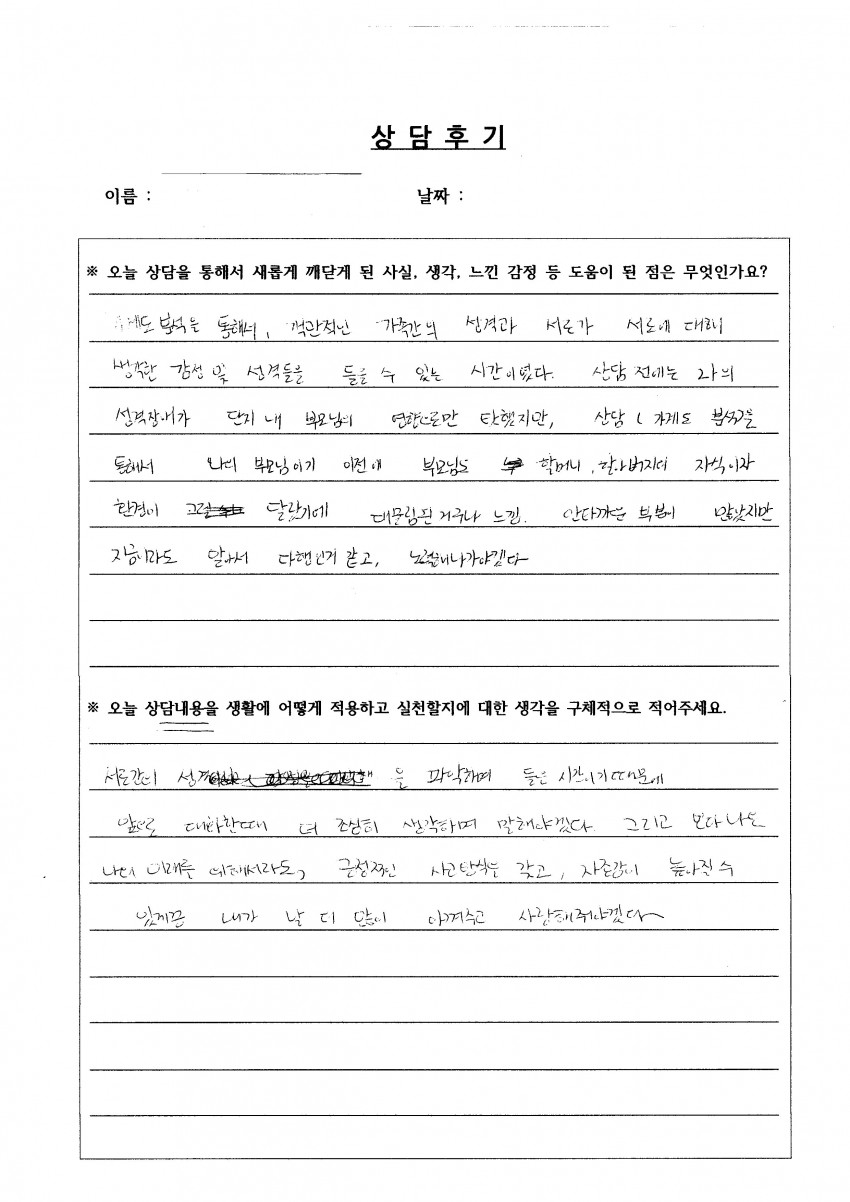 상 담 후 기
이름 :
날짜 :
※ 오늘 상담을 통해서 새롭게 깨닫게 된 사실, 생각, 느낀 감정 등 도움이 된 점은 무엇인가요?
통해서, 객관적인 가족간의 성격과 서로가 서로에 대해
생각한 감정 및 성격들을 들을 수 있는 시간이였다. 상담 전에는 나의
성격장애가 단지 내 부모님의 영향으로만 탓했지만, 상담 가계도 분석을
통해서 나의 부모님이기 이전에 부모님도 할머니, 할아버지의 자식이자
환경이 달랐기에 대물림된 거구나 느낌. 안타까운 부분이 많았지만
지금이라도 알아서 다행인거 같고, 노력해나가야겠다
※ 오늘 상담내용을 생활에 어떻게 적용하고 실천할지에 대한 생각을 구체적으로 적어주세요.
서로간의 성격 을 파악하며 들은 시간이기 때문에
앞으로 대화할때 더 조심히 생각하며 말해야겠다. 그리고 보다 나은
나의 미래를 위해서라도, 긍정적인 사고방식을 갖고, 자존감이 높아질 수
있게끔 내가 날 더 많이 아껴주고 사랑해줘야겠다